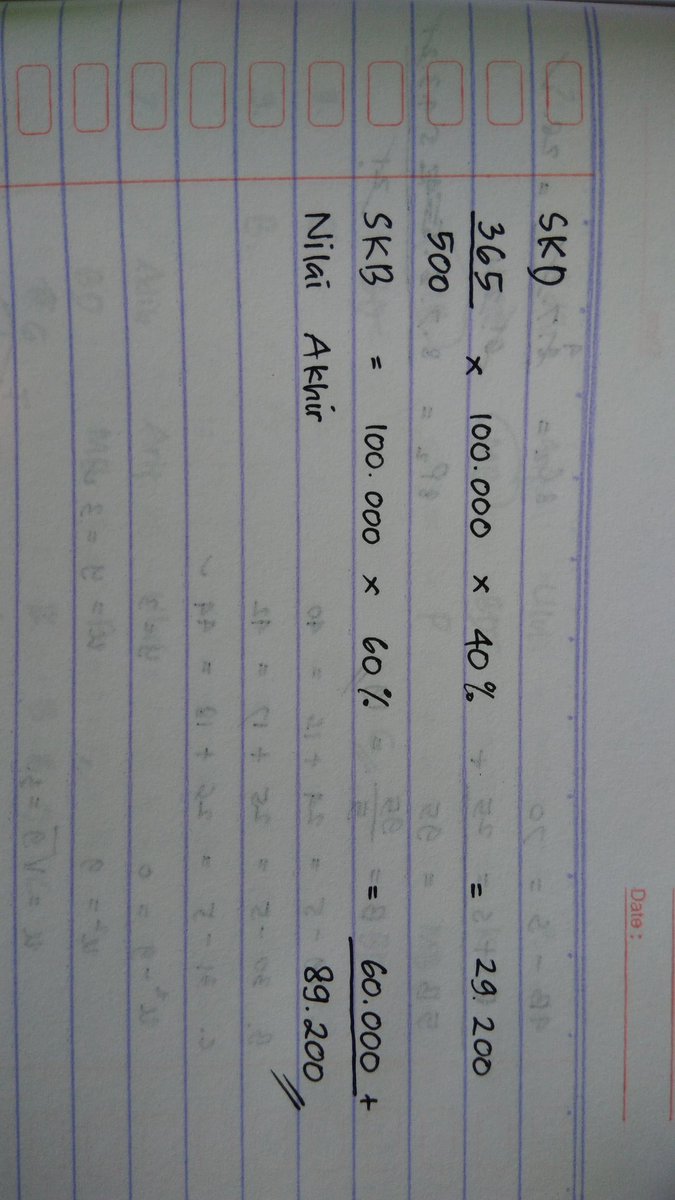 Date :
SKD
365
500
x 100.000 x 40% = 29.200
SKB = 100.000 x 60% = 60.000 +
Nilai Akhir 89.200